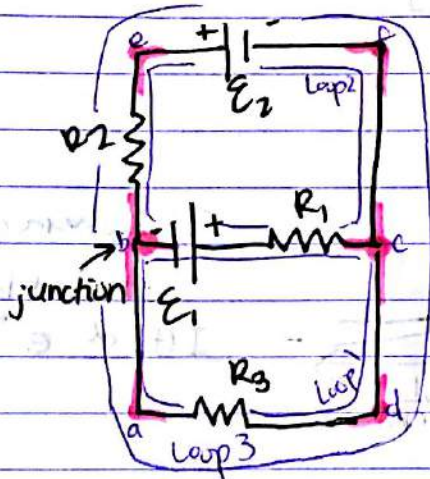 e + - f
ε₂
Loop2
R2
b - + R₁ c
junction
ε₁
R₃
Loop1
a d
Loop3